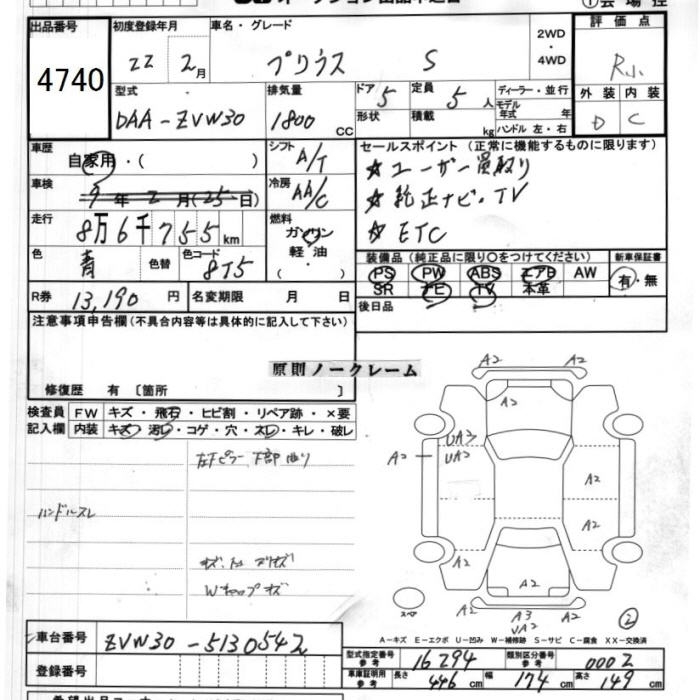 出品番号 初度登録年月 車名・グレード 2WD・4WD 評価点
4740 22 2月 プリウス S R小
型式 排気量 ドア 5 定員 5人 ディーラー・並行 外装 内装
DAA-ZVW30 1800 CC 形状 積載 kg モデル年式 年 D C
ハンドル 左・右
車歴 自家用・( ) シフト A/T セールスポイント (正常に機能するものに限ります)
☆ユーザー買取り
車検 9年2月(25日) 冷房 AA/C
☆純正ナビ・TV
走行 8万6千755km 燃料 ガソリン 軽油 ( ・ )
☆ETC
色 青 色替 色コード 8T5
装備品 (純正品に限り○をつけてください) 新車保証書
PS PW ABS エアB AW 有・無
SR ナビ TV 本革
R券 13,190円 名変期限 月 日 後日品
注意事項申告欄(不具合内容等は具体的に記入して下さい)
原則ノークレーム
修復歴 有 〔箇所 〕
検査員 FW キズ・飛石・ヒビ割・リペア跡・×要
記入欄 内装 キズ・汚レ・コゲ・穴・スレ・キレ・破レ
左Fピラー下部曲り
ハンドルスレ
Wキャップキズ
A2 A2
A2
UA3
A2 UA2
A2
A2
A2 A2
A2 A3 A2
UA2
スペア
②
A－キズ E－エクボ U－凹み W－補修跡 S－サビ C－腐食 XX－交換済
車台番号 ZVW30-5130542
型式指定番号 参考 16294 類別区分番号 参考 0002
登録番号
車庫証明 参考 長さ 446cm 幅 174cm 高さ 149cm